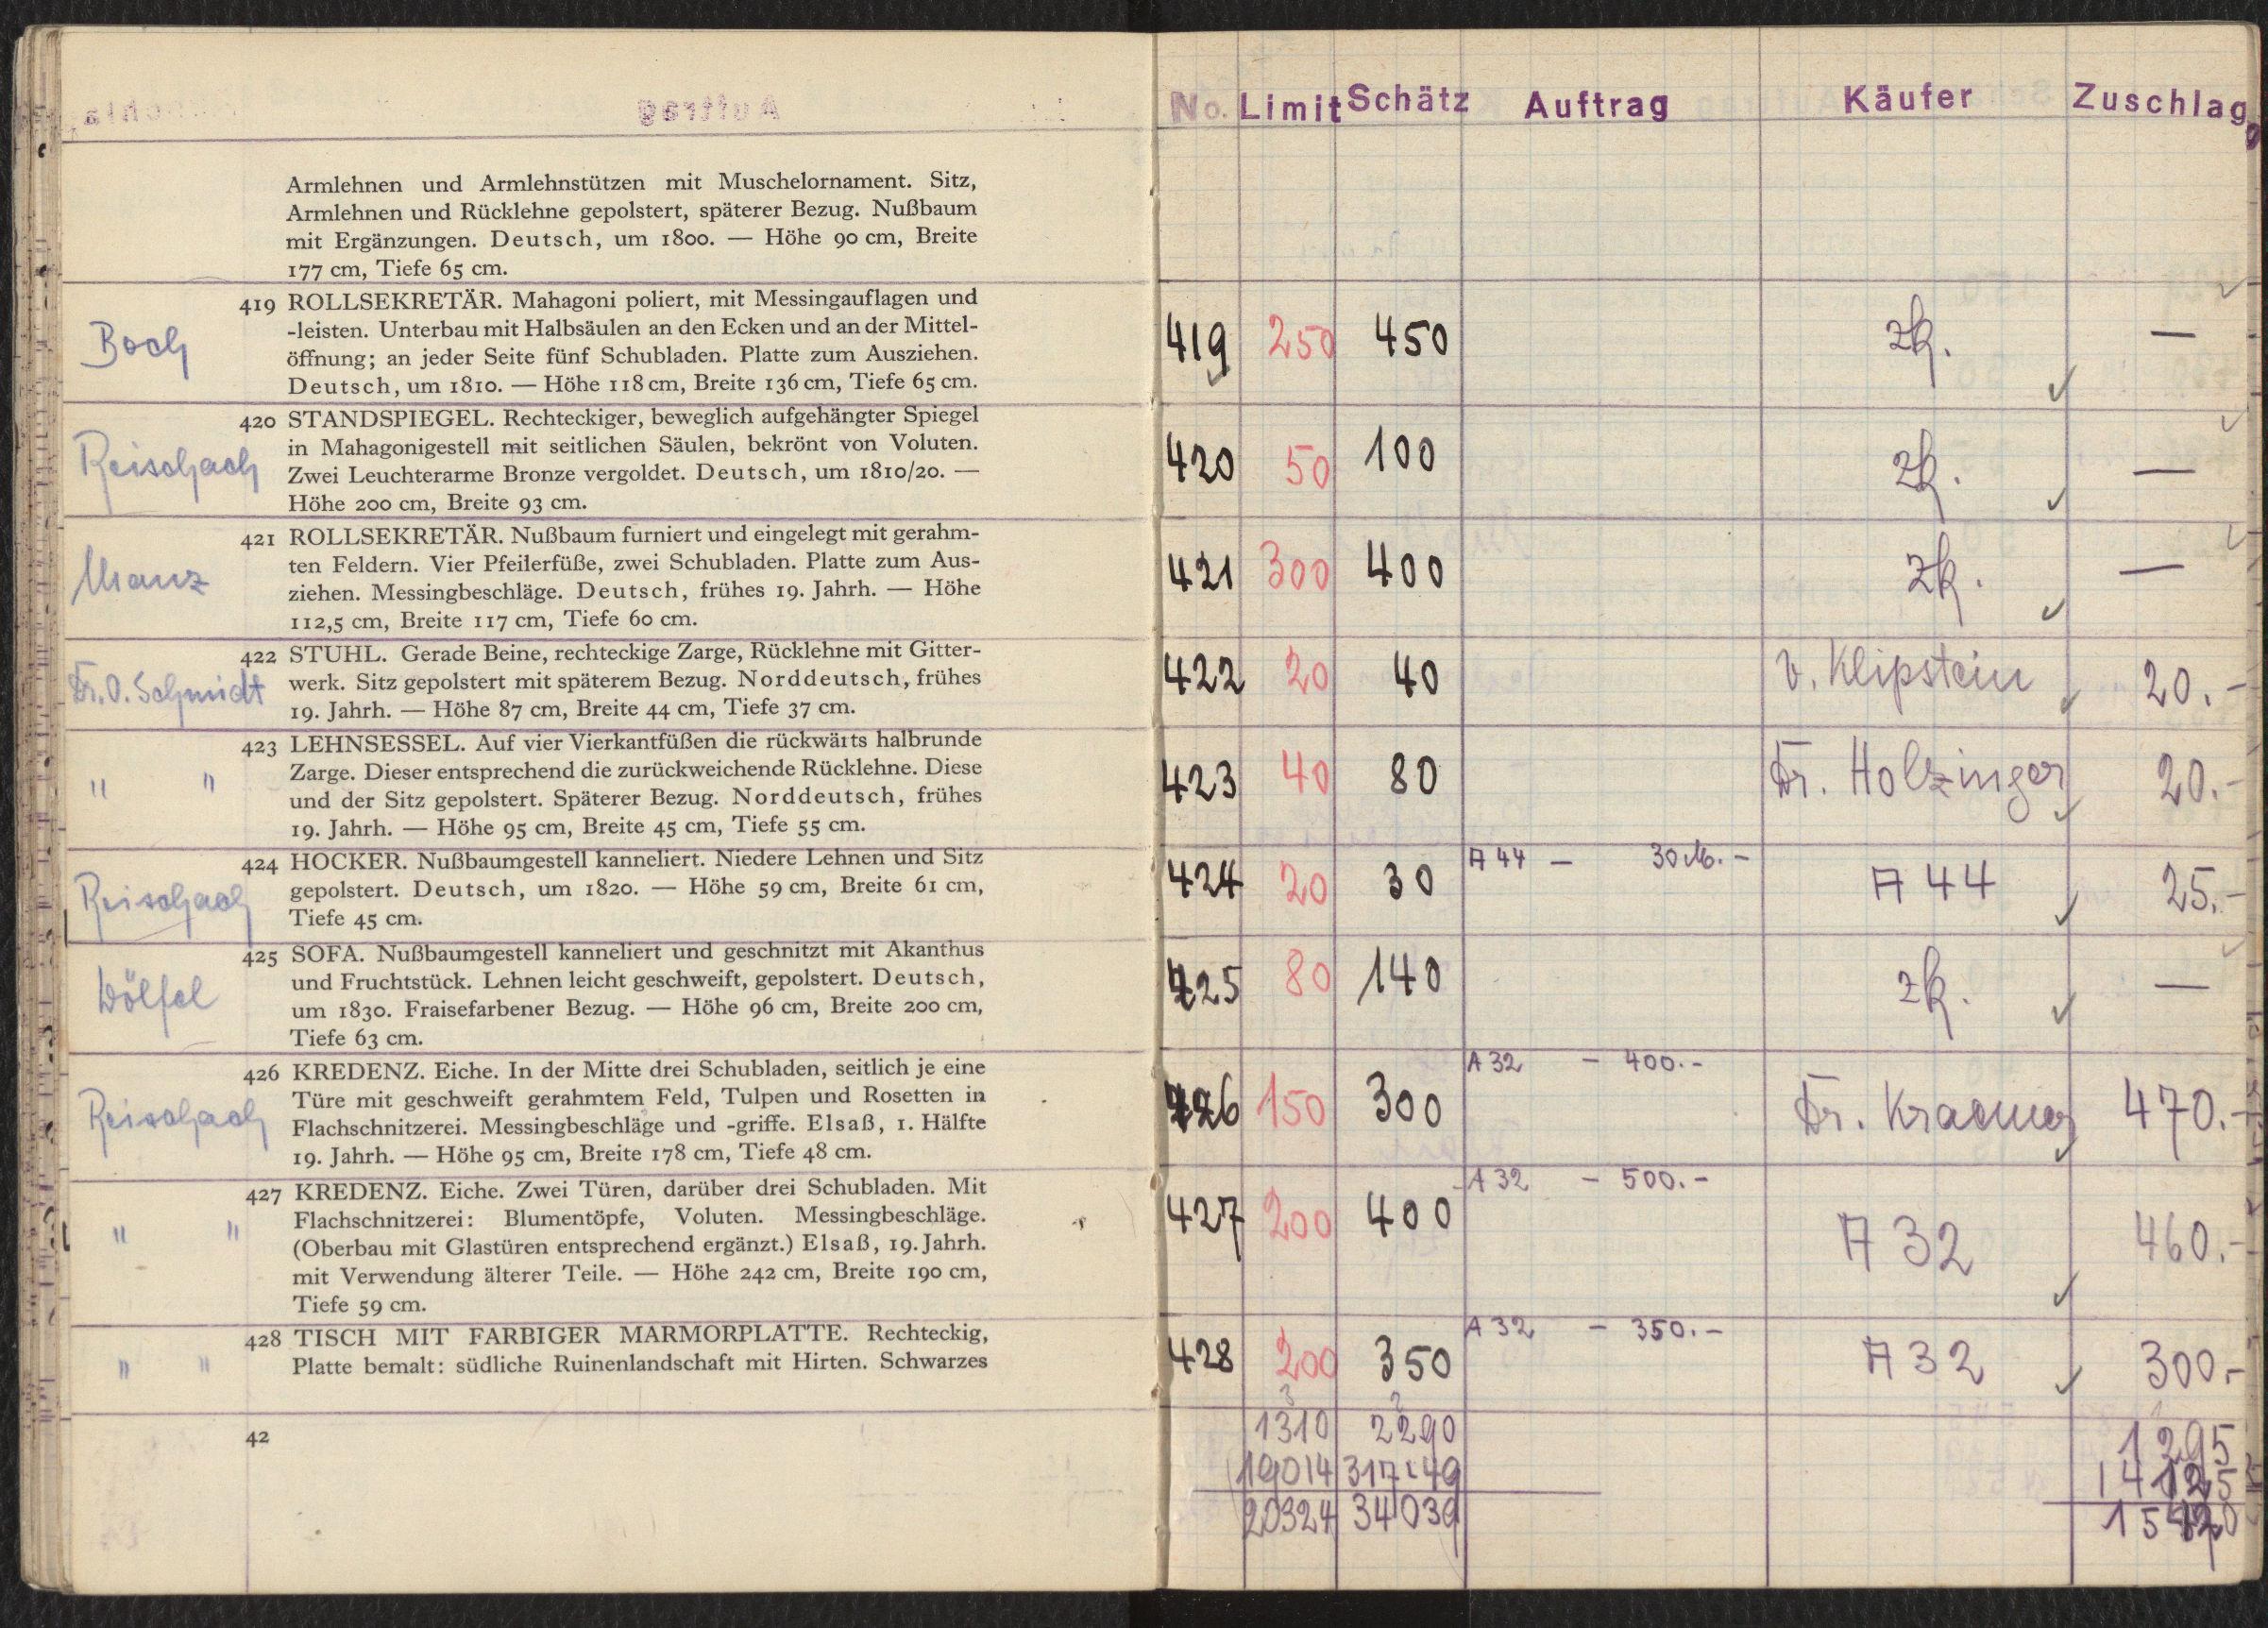 No. Limit Schätz Auftrag Käufer Zuschlag
Armlehnen und Armlehnstützen mit Muschelornament. Sitz,
Armlehnen und Rücklehne gepolstert, späterer Bezug. Nußbaum
mit Ergänzungen. Deutsch, um 1800. — Höhe 90 cm, Breite
177 cm, Tiefe 65 cm.
419 ROLLSEKRETÄR. Mahagoni poliert, mit Messingauflagen und
-leisten. Unterbau mit Halbsäulen an den Ecken und an der Mittel-
öffnung; an jeder Seite fünf Schubladen. Platte zum Ausziehen.
Deutsch, um 1810. — Höhe 118 cm, Breite 136 cm, Tiefe 65 cm.
Boch
419 250 450 zk. —
420 STANDSPIEGEL. Rechteckiger, beweglich aufgehängter Spiegel
in Mahagonigestell mit seitlichen Säulen, bekrönt von Voluten.
Zwei Leuchterarme Bronze vergoldet. Deutsch, um 1810/20. —
Höhe 200 cm, Breite 93 cm.
Reischach
420 50 100 zk. —
421 ROLLSEKRETÄR. Nußbaum furniert und eingelegt mit gerahm-
ten Feldern. Vier Pfeilerfüße, zwei Schubladen. Platte zum Aus-
ziehen. Messingbeschläge. Deutsch, frühes 19. Jahrh. — Höhe
112,5 cm, Breite 117 cm, Tiefe 60 cm.
421 300 400 zk. —
422 STUHL. Gerade Beine, rechteckige Zarge, Rücklehne mit Gitter-
werk. Sitz gepolstert mit späterem Bezug. Norddeutsch, frühes
19. Jahrh. — Höhe 87 cm, Breite 44 cm, Tiefe 37 cm.
Dr. O. Schmidt
422 20 40 v. Klipstein 20.-
423 LEHNSESSEL. Auf vier Vierkantfüßen die rückwärts halbrunde
Zarge. Dieser entsprechend die zurückweichende Rücklehne. Diese
und der Sitz gepolstert. Späterer Bezug. Norddeutsch, frühes
19. Jahrh. — Höhe 95 cm, Breite 45 cm, Tiefe 55 cm.
" "
423 40 80 Dr. Holzinger 20.-
424 HOCKER. Nußbaumgestell kanneliert. Niedere Lehnen und Sitz
gepolstert. Deutsch, um 1820. — Höhe 59 cm, Breite 61 cm,
Tiefe 45 cm.
Reischach
A 44 — 30 M. -
424 20 30 A 44 25.-
425 SOFA. Nußbaumgestell kanneliert und geschnitzt mit Akanthus
und Fruchtstück. Lehnen leicht geschweift, gepolstert. Deutsch,
um 1830. Fraisefarbener Bezug. — Höhe 96 cm, Breite 200 cm,
Tiefe 63 cm.
Wölfel
425 80 140 zk. —
426 KREDENZ. Eiche. In der Mitte drei Schubladen, seitlich je eine
Türe mit geschweift gerahmtem Feld, Tulpen und Rosetten in
Flachschnitzerei. Messingbeschläge und -griffe. Elsaß, 1. Hälfte
19. Jahrh. — Höhe 95 cm, Breite 178 cm, Tiefe 48 cm.
Reischach
A 32 - 400.-
426 150 300 Dr. Kraemer 470.-
427 KREDENZ. Eiche. Zwei Türen, darüber drei Schubladen. Mit
Flachschnitzerei: Blumentöpfe, Voluten. Messingbeschläge.
(Oberbau mit Glastüren entsprechend ergänzt.) Elsaß, 19. Jahrh.
mit Verwendung älterer Teile. — Höhe 242 cm, Breite 190 cm,
Tiefe 59 cm.
" "
A 32 - 500.-
427 200 400 A 32 460.-
428 TISCH MIT FARBIGER MARMORPLATTE. Rechteckig,
Platte bemalt: südliche Ruinenlandschaft mit Hirten. Schwarzes
" "
A 32 - 350.-
428 200 350 A 32 300.-
42
1310 2290 1295
19014 31749
20324 34039